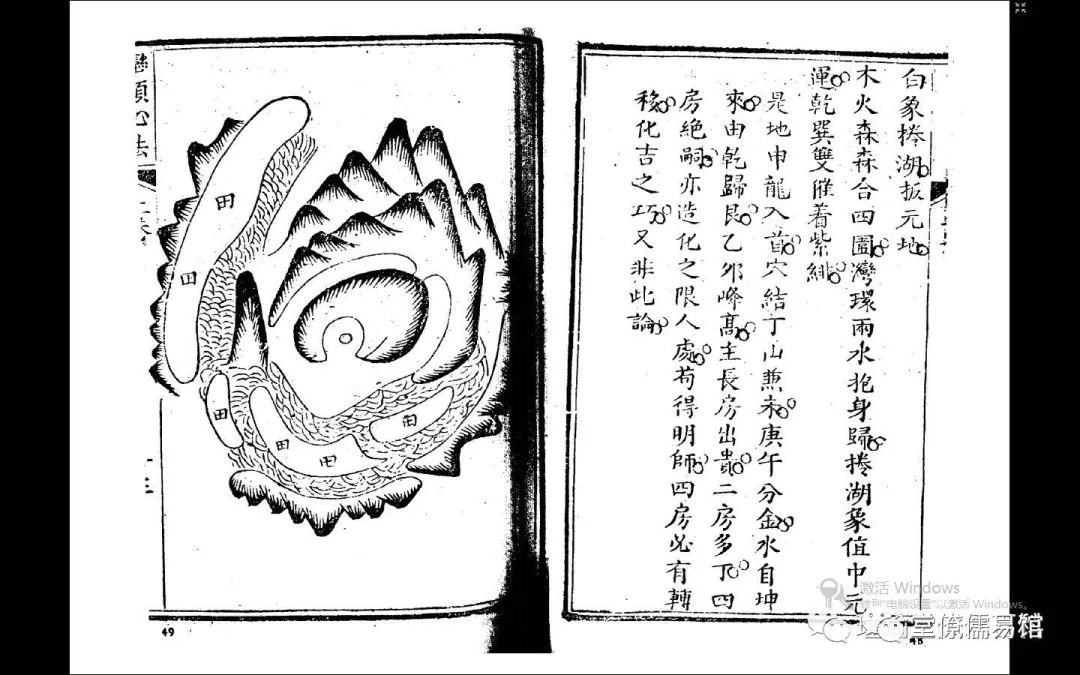 白象捲湖扳元地
木火森森合四圍灣環兩水抱身歸捲湖象值中元
運乾巽雙催着紫緋
是地申龍入首穴結丁山兼未庚午分金水自坤
來由乾歸艮乙卯峰高主長房出貴二房多丁四
房絕嗣亦造化之限人處苟得明師四房必有轉
移化吉之巧又非此論
巒頭心法
田
田
田
田
田
田
49
48
激活 Windows
转到"电脑设置"以激活 Windows。
堂僚儒易馆